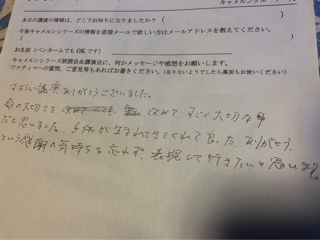 本日の講演の情報は、どこでお知りになりましたか？（　　　　）
今後キャメルンシリーズの情報を直接メールで欲しい方はメールアドレスを教えてください。
（　　　　）
お名前（ペンネームでもOKです）
キャメルンシリーズ朗読会&講演会に、何かメッセージや感想をお願いします！
ファティマへの質問、ご意見等もあればお書きください。（足りないようでしたら裏面もお使いください）
すばらしい講演ありがとうございました。
命の大切さを 改めて すごく大切な事
だと思いました。子供が生まれてきてくれて良かった、ありがとう、
という感謝の気持ちを忘れず、表現して行きたいと思います。